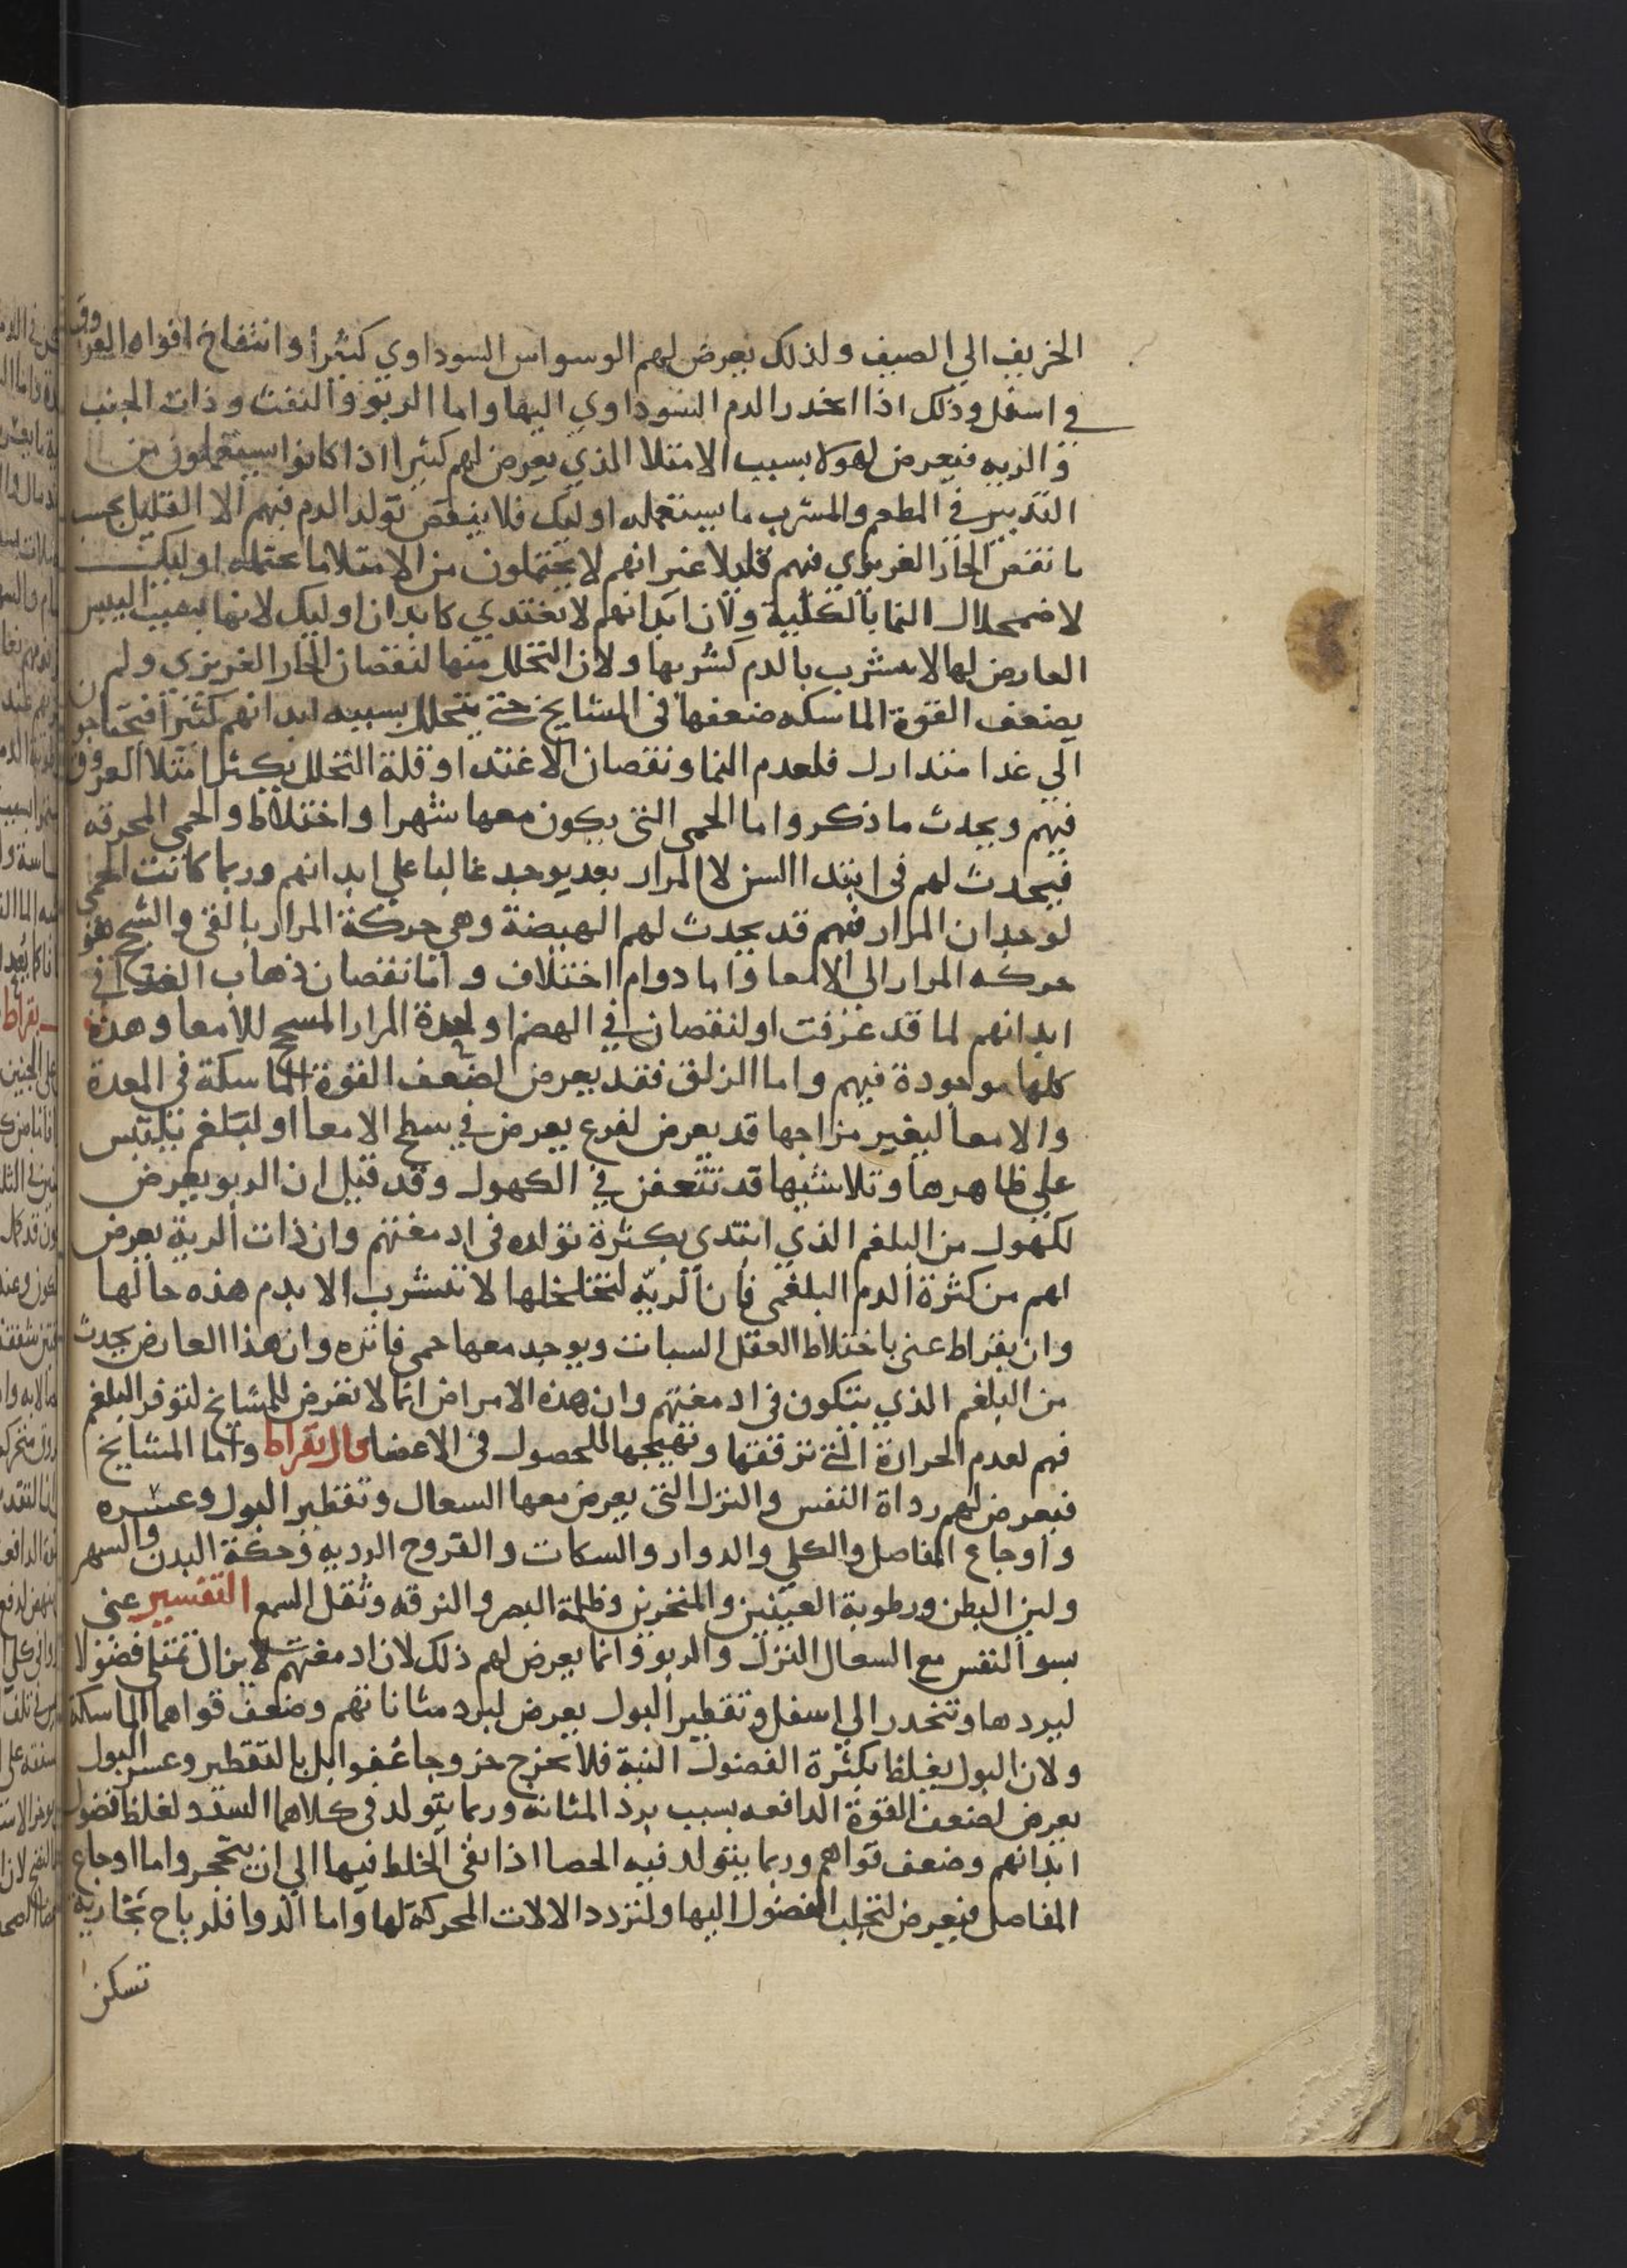 الخريف الي الصيف ولذلك يعرض لهم الوسواس السوداوي كثيرا وانتفاخ افواه العروق
في اسفل وذلك اذا انحدر الدم السوداوي اليها واما الربو والنفث وذات الجنب
و الريه فيعرض لهولا بسبب الامتلا الذي يعرض لهم كثيرا اذا كانوا يستعملون من
التدبير في المطعم والمشرب ما يستعمله اوليك فلا ينقص تولد الدم فيهم الا القليل بحسب
ما نقص الحار الغريزي فيهم قليلا غير انهم لا يحتملون من الامتلا ما يحتمله اوليك
لاضمحلال النما بالكلية ولان ابدانهم لا تغتدي كابدان اوليك لانها بسبب اليبس
العارض لها لا تتشرب بالدم كشربها ولان التحلل منها لنقصان الحار الغريزي ولم
يضعف القوة الماسكه ضعفها في المشايخ حتى يتحلل بسببه ابدانهم كثيرا فيحتاجون
الي غدا متدارك فلعدم النما ونقصان الاغتدا وقلة التحلل يكثر امتلا العروق
فيهم ويحدث ما ذكر واما الحمي التي يكون معها سهرا واختلاط والحمي المحرقه
فيحدث لهم في ابتدا السن لا المرار بعد يوجد غالبا علي ابدانهم وربما كانت الحمى
لوجدان المرار فيهم قد يحدث لهم الهيضة وهي حركة المرار بالقي والسحج هو
حركه المرار الي الامعا واما دوام اختلاف واما نقصان ذهاب الغدا في
ابدانهم لما قد عرفت او لنقصان في الهضم او لحدة المرار المسحج للامعا وهذه
كلها موجودة فيهم واما الزلق فقد يعرض لضعف القوة الماسكة في المعدة
والامعا لتغير مزاجها قد يعرض لقرع يعرض في سطح الامعا او لبلغم يلتبس
علي ظاهرها وتلاشيها قد تتعفن في الكهول وقد قيل ان الربو يعرض
لكهول من البلغم الذي ابتدي بكثرة تولده في ادمغتهم وان ذات الرية يعرض
لهم من كثرة الدم البلغمي فان الريه لتخلخلها لا تتشرب الا بدم هذه حالها
وان بقراط عني باختلاط العقل السبات ويوجد معها حمي فاتره وان هذا العارض يحدث
من البلغم الذي يتكون في ادمغتهم وان هذه الامراض انما لا تعرض للمشايخ لتوفر البلغم
فيهم لعدم الحرارة التي ترققها وتهيجها للحصول في الاعضا قال بقراط واما المشايخ
فيعرض لهم رداة النفس والنزل التي يعرض معها السعال وتقطير البول وعسره
واوجاع المفاصل والكلي والدوار والسكات والقروح الرديه وحكة البدن والسهر
ولين البطن ورطوبة العينين والمنخرين وظلمة البصر والزرقه وثقل السمع التفسير عني
بسو النفس مع السعال النزل والربو وانما يعرض لهم ذلك لان ادمغتهم لا يزال تمتلي فضولا
لبردها وتنحدر الي اسفل وتقطير البول يعرض لبرد مثاناتهم وضعف قواهما الماسكة
ولان البول يغلظ بكثرة الفضول النية فلا يخرج خروجا عفوا بل بالتقطير وعسر البول
يعرض لضعف القوة الدافعه بسبب برد المثانه وربما يتولد في كلاهما السدد لغلظ فضول
ابدانهم وضعف قواهم وربما يتولد فيه الحصا اذا بقي الخلط فيها الي ان يتحجر واما اوجاع
المفاصل فيعرض لتجلب الفضول اليها ولتردد الالات المحركة لها واما الدوا فلرياح بخارية
تسكن